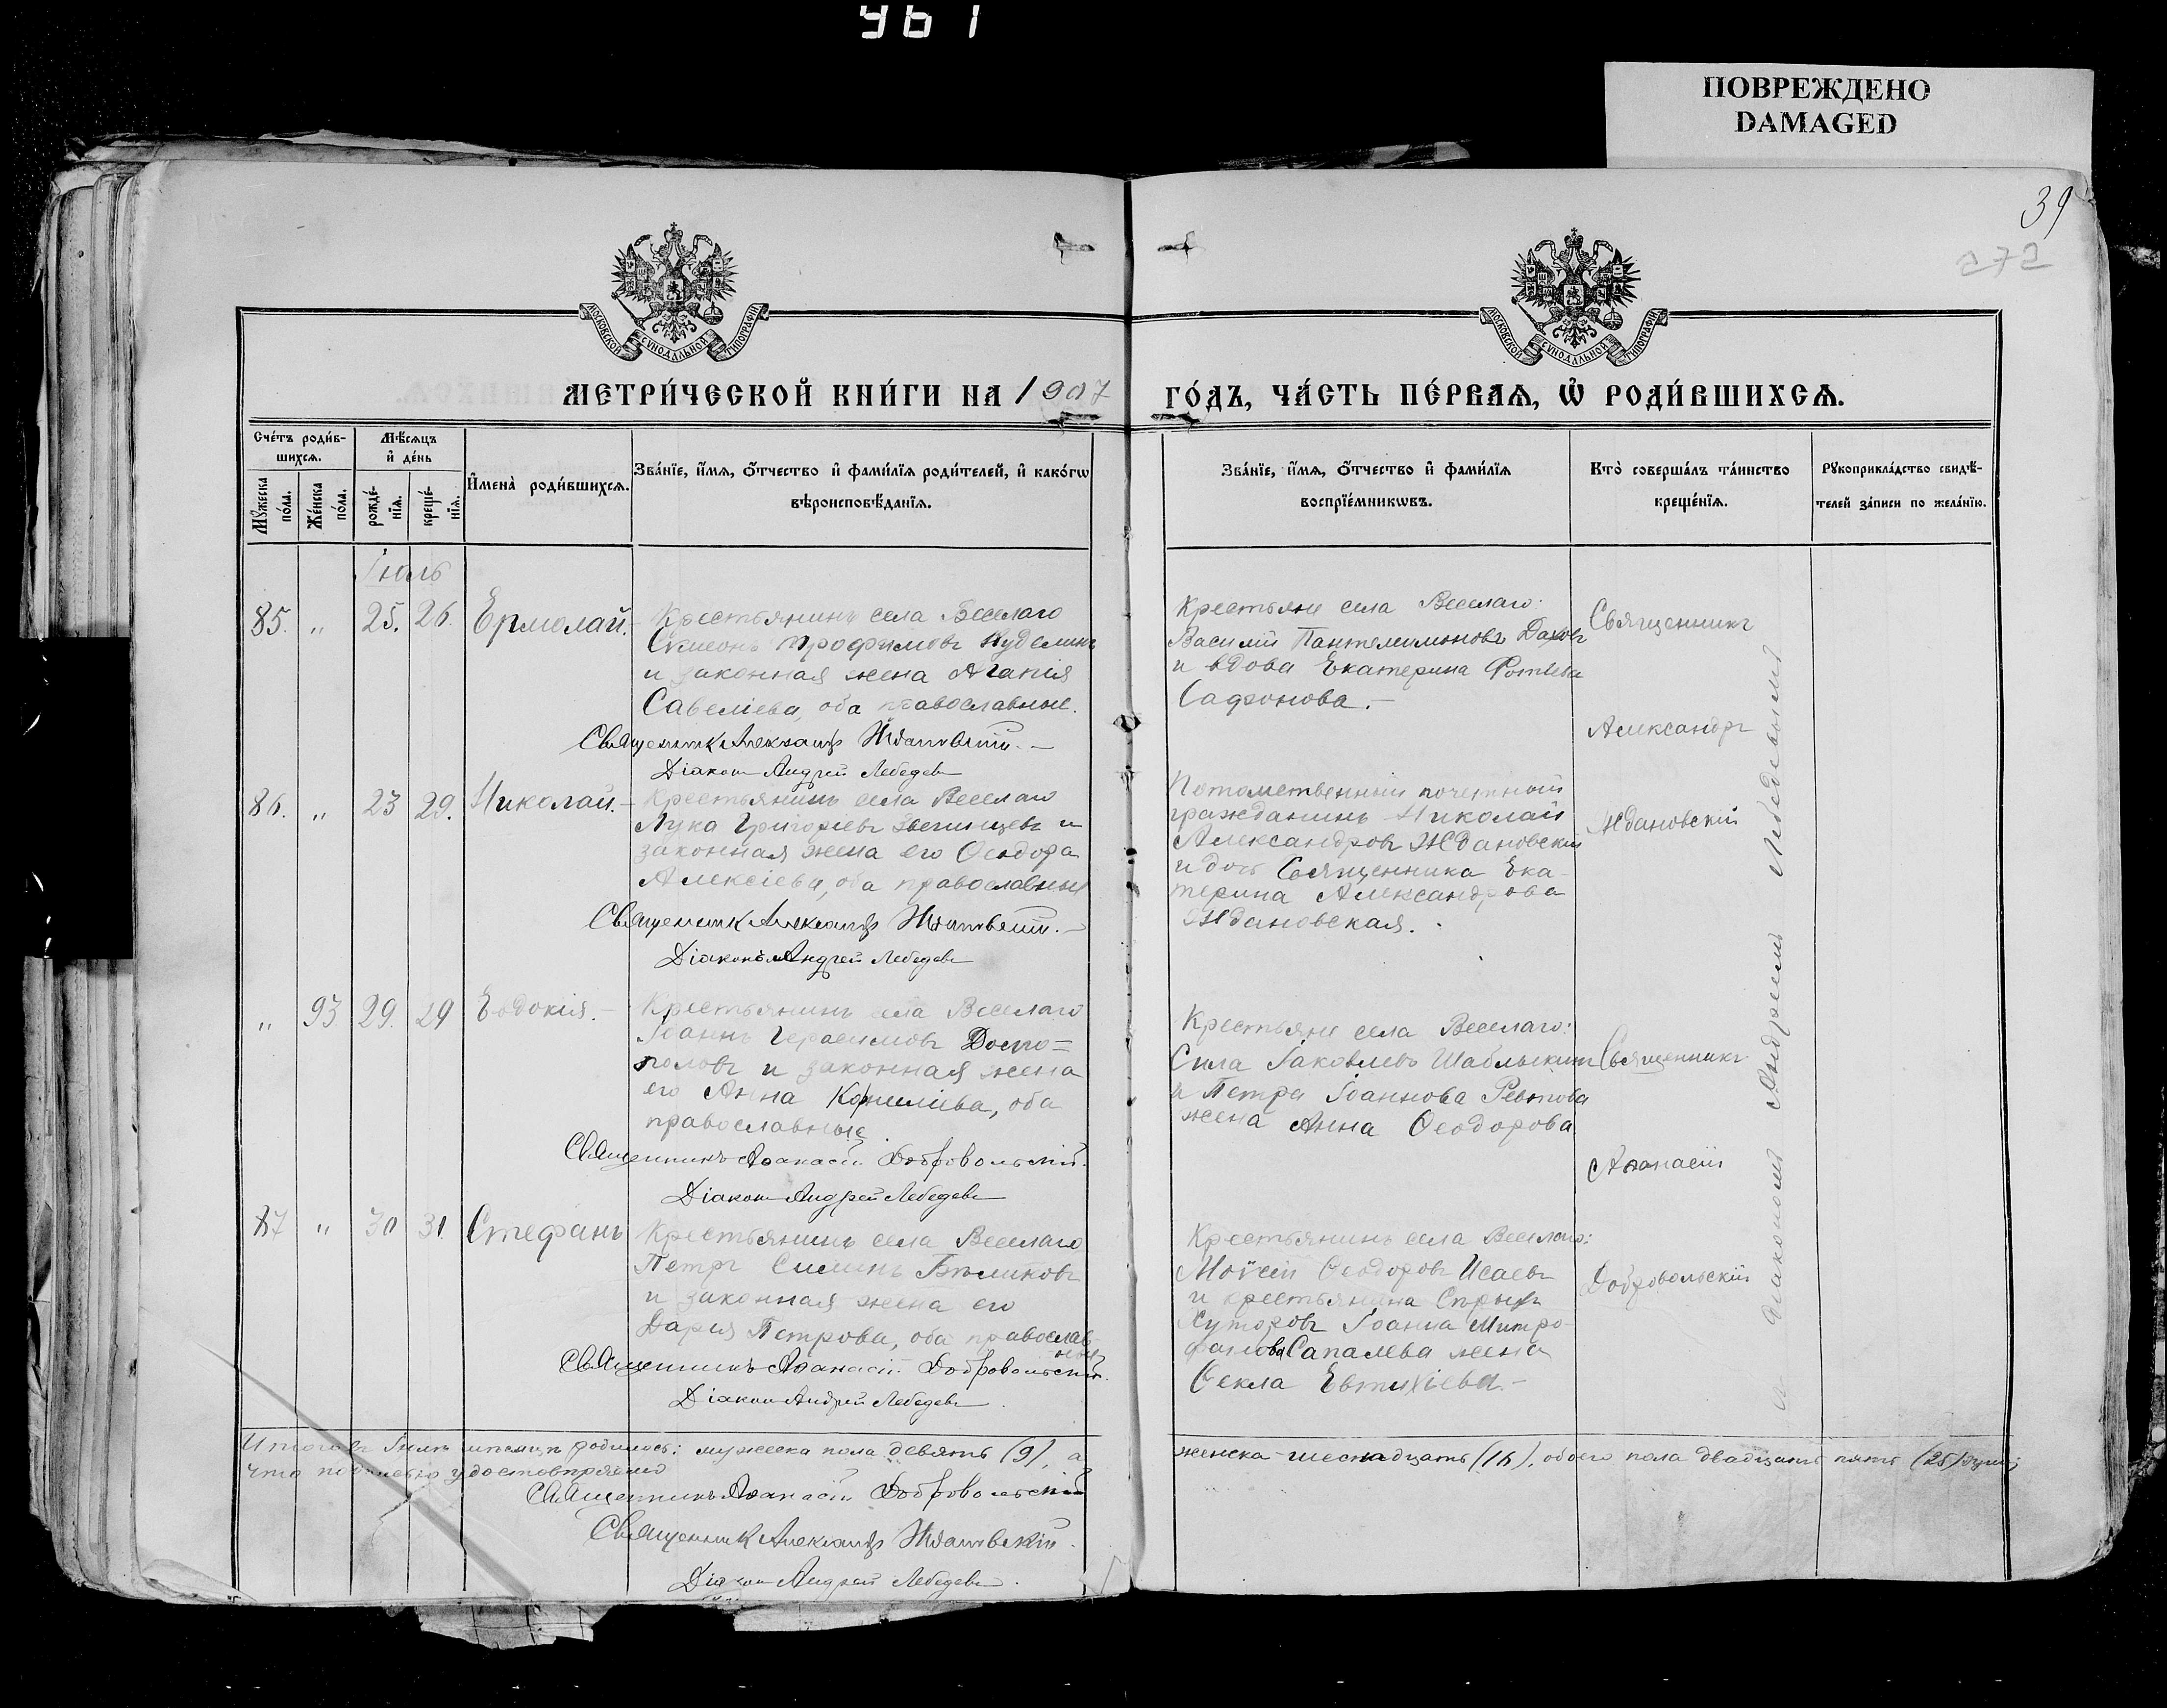 961
ПОВРЕЖДЕНО
DAMAGED
39
272
МОСКОВСКОЙ СѴНОДАЛЬНОЙ ТИПОГРАФІИ
МОСКОВСКОЙ СѴНОДАЛЬНОЙ ТИПОГРАФІИ
МЕТРИ́ЧЕСКОЙ КНИ́ГИ НА 1907 ГО́ДЪ, ЧА́СТЬ ПЕ́РВАѦ, Ѡ҆ РОДИ́ВШИХСѦ.
Сче́тъ роди́в-
шихсѧ.
Мꙋ́жеска по́ла.
Же́нска по́ла.
Мѣ́сѧцъ
и҆ де́нь
рожде́-
нїѧ.
креще́-
нїѧ.
И҆мена̀ роди́вшихсѧ.
Зва́нїе, и҆́мѧ, ѻ҆́тчество и҆ фами́лїѧ роди́телей, и҆ како́гѡ
вѣроисповѣ́данїѧ.
Зва́нїе, и҆́мѧ, ѻ҆́тчество и҆ фами́лїѧ
воспрїе́мникѡвъ.
Кто̀ соверша́лъ та́инство
креще́нїѧ.
Рꙋкоприкла́дство свидѣ́-
телей за́писи по жела́нїю.
Іюль
85. " 25. 26. Ермолай.
Крестьянинъ села Веселаго
Сѵмеонъ Трофимовъ Куделинъ
и законная жена Агапія
Савеліева, оба православные.
Священникъ Александръ Ждановскій.
Діаконъ Андрей Лебедевъ
Крестьяне села Веселаго:
Василій Пантелимоновъ Даховъ
и вдова Екатерина Фотіева
Сафонова.
Священникъ
Александръ
Ждановскій
86. " 23 29. Николай.
Крестьянинъ села Веселаго
Лука Григоріевъ Звегинцевъ и
законная жена его Ѳеодора
Алексіева, оба православные
Священникъ Александръ Ждановскій.
Діаконъ Андрей Лебедевъ
Потомственный почетный
гражданинъ Николай
Александровъ Ждановскій
и дочь Священника Ека-
терина Александрова
Ждановская.
" 93 29. 29 Евдокія.
Крестьянинъ села Веселаго
Іоаннъ Герасимовъ Досто=
половъ и законная жена
его Анна Корниліева, оба
православные
Священникъ Аѳанасій Добровольскій.
Діаконъ Андрей Лебедевъ
Крестьяне села Веселаго:
Сила Іаковлевъ Шаблыкин
и Петра Іоаннова Ревтова
жена Анна Ѳеодорова
Священникъ
Аѳанасій
Добровольскій
съ діакономъ Андреемъ Лебедевымъ
87 " 30 31. Стефанъ
Крестьянинъ села Веселаго
Петръ Силинъ Бѣликовъ
и законная жена его
Дарія Петрова, оба православ-
ные
Священникъ Аѳанасій Добровольскій.
Діаконъ Андрей Лебедевъ
Крестьянинъ села Веселаго:
Моѵсей Ѳеодоровъ Исаевъ
и крестьянина
Хуторовъ Іоанна Митро-
фанова Сапалева жена
Ѳекла Евтихіева.
Итого въ Іюлѣ мѣсяцѣ родилось: мужеска пола девять (9), а женска-шеснадцать (16), обоего пола двадцать пять (25) душъ;
что подписью удостовѣряемъ
Священникъ Аѳанасій Добровольскій
Священникъ Александръ Ждановскій.
Діаконъ Андрей Лебедевъ.